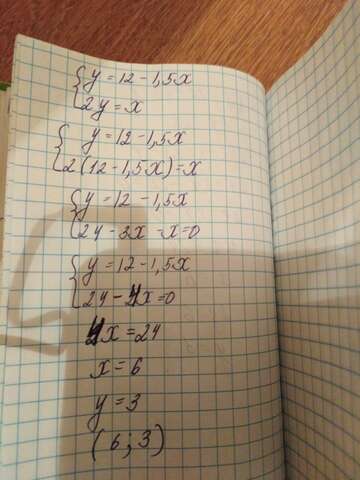 {y = 12 - 1,5x
{2y = x
{y = 12 - 1,5x
{2(12 - 1,5x) = x
{y = 12 - 1,5x
{24 - 3x - x = 0
{y = 12 - 1,5x
{24 - 4x = 0
4x = 24
x = 6
y = 3
(6; 3)